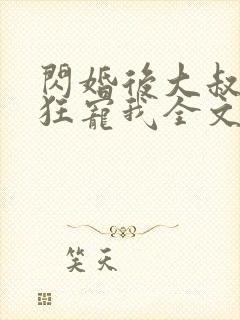 閃婚後大叔
狂寵我全文
笑天